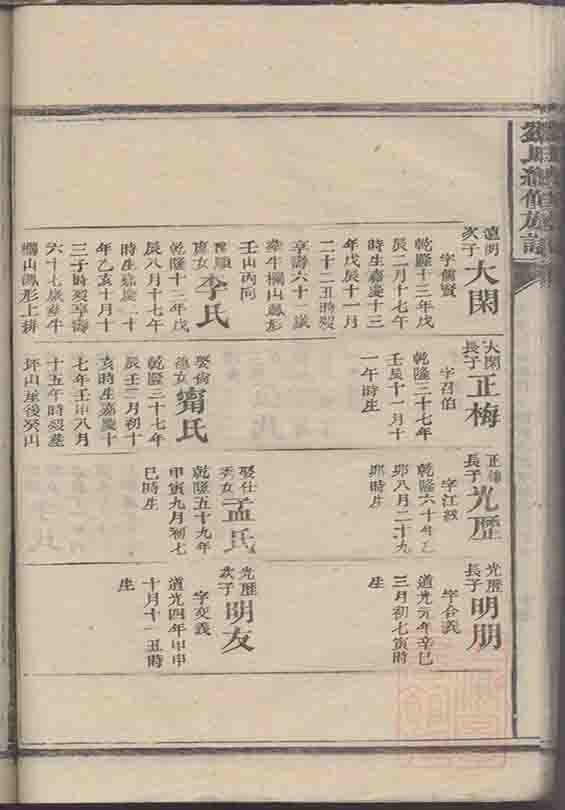 次子
大閑
字備賢
乾隆十三年戊
辰二月十七午
時生嘉慶十三
年戊辰十一月
二十二丑時歿
享壽六十一歲
牽牛欄山鳳形
壬山丙向
李氏
乾隆十二年戊
辰八月十七午
時生嘉慶二十
年乙亥十月十
三子時歿享壽
六十七歲牽牛
欄山鳳形上耕
大閑
長子
正梅
字召伯
乾隆三十七年
壬辰十一月十
一午時生
甯氏
乾隆三十七年
辰壬二月初十
亥時生嘉慶十
七年壬申八月
十五午時歿葬
坪山屋後癸山
長子
光歷
乾隆六十年乙
卯八月二十九
卯時生
娶仕
女
孟氏
乾隆五十九年
甲寅九月初七
巳時生
光歷
長子
明朋
字合義
道光元年辛巳
三月初七寅時
生
光歷
次子
明友
字交義
道光四年甲申
十月十 丑時
生